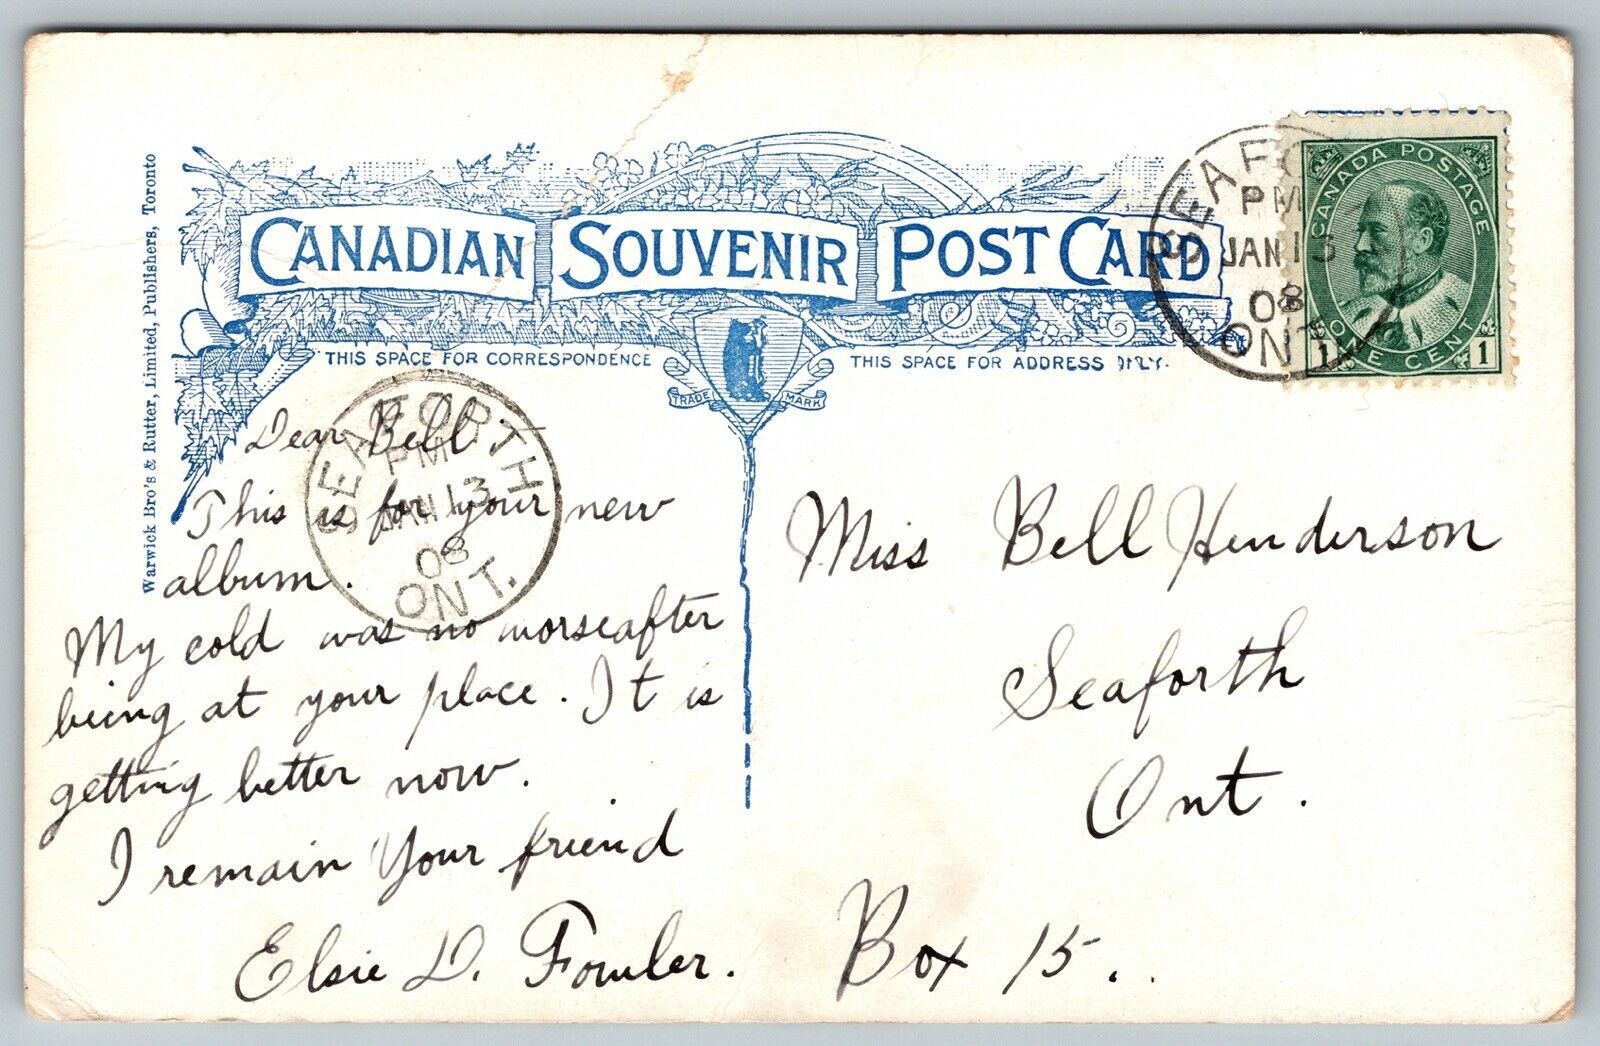 CANADIAN SOUVENIR POST CARD
THIS SPACE FOR CORRESPONDENCE
THIS SPACE FOR ADDRESS ONLY.
TRADE MARK
Warwick Bro's & Rutter, Limited, Publishers, Toronto
SEAFO
PM
JAN 13
08
ONT
CANADA POSTAGE
ONE CENT
1 1
SEAFORTH
PM
JAN 13
08
ONT.
Dear Bell
This is for your new
album.
My cold was no worse after
being at your place. It is
getting better now.
I remain Your friend
Elsie D. Fowler.
Miss Bell Henderson
Seaforth
Ont.
Box 15.